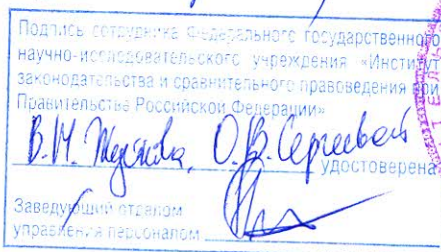 Подпись сотрудника Федерального государственного
научно-исследовательского учреждения «Институт
законодательства и сравнительного правоведения при
Правительстве Российской Федерации»
В.М. О.В. Сергеевой
удостоверена
Заведующий отделом
управления персоналом